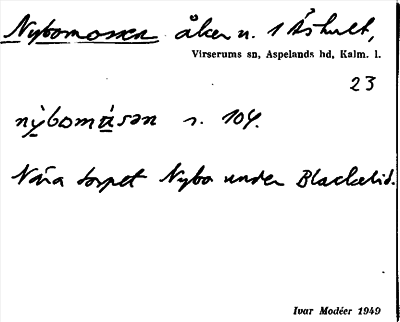 Nybomossen åker u. 1 Åshult,
Virserums sn, Aspelands hd, Kalm. l.
23
nỳbomåsən s. 104.
Nära torpet Nybo under Blackelid.
Ivar Modéer 1949